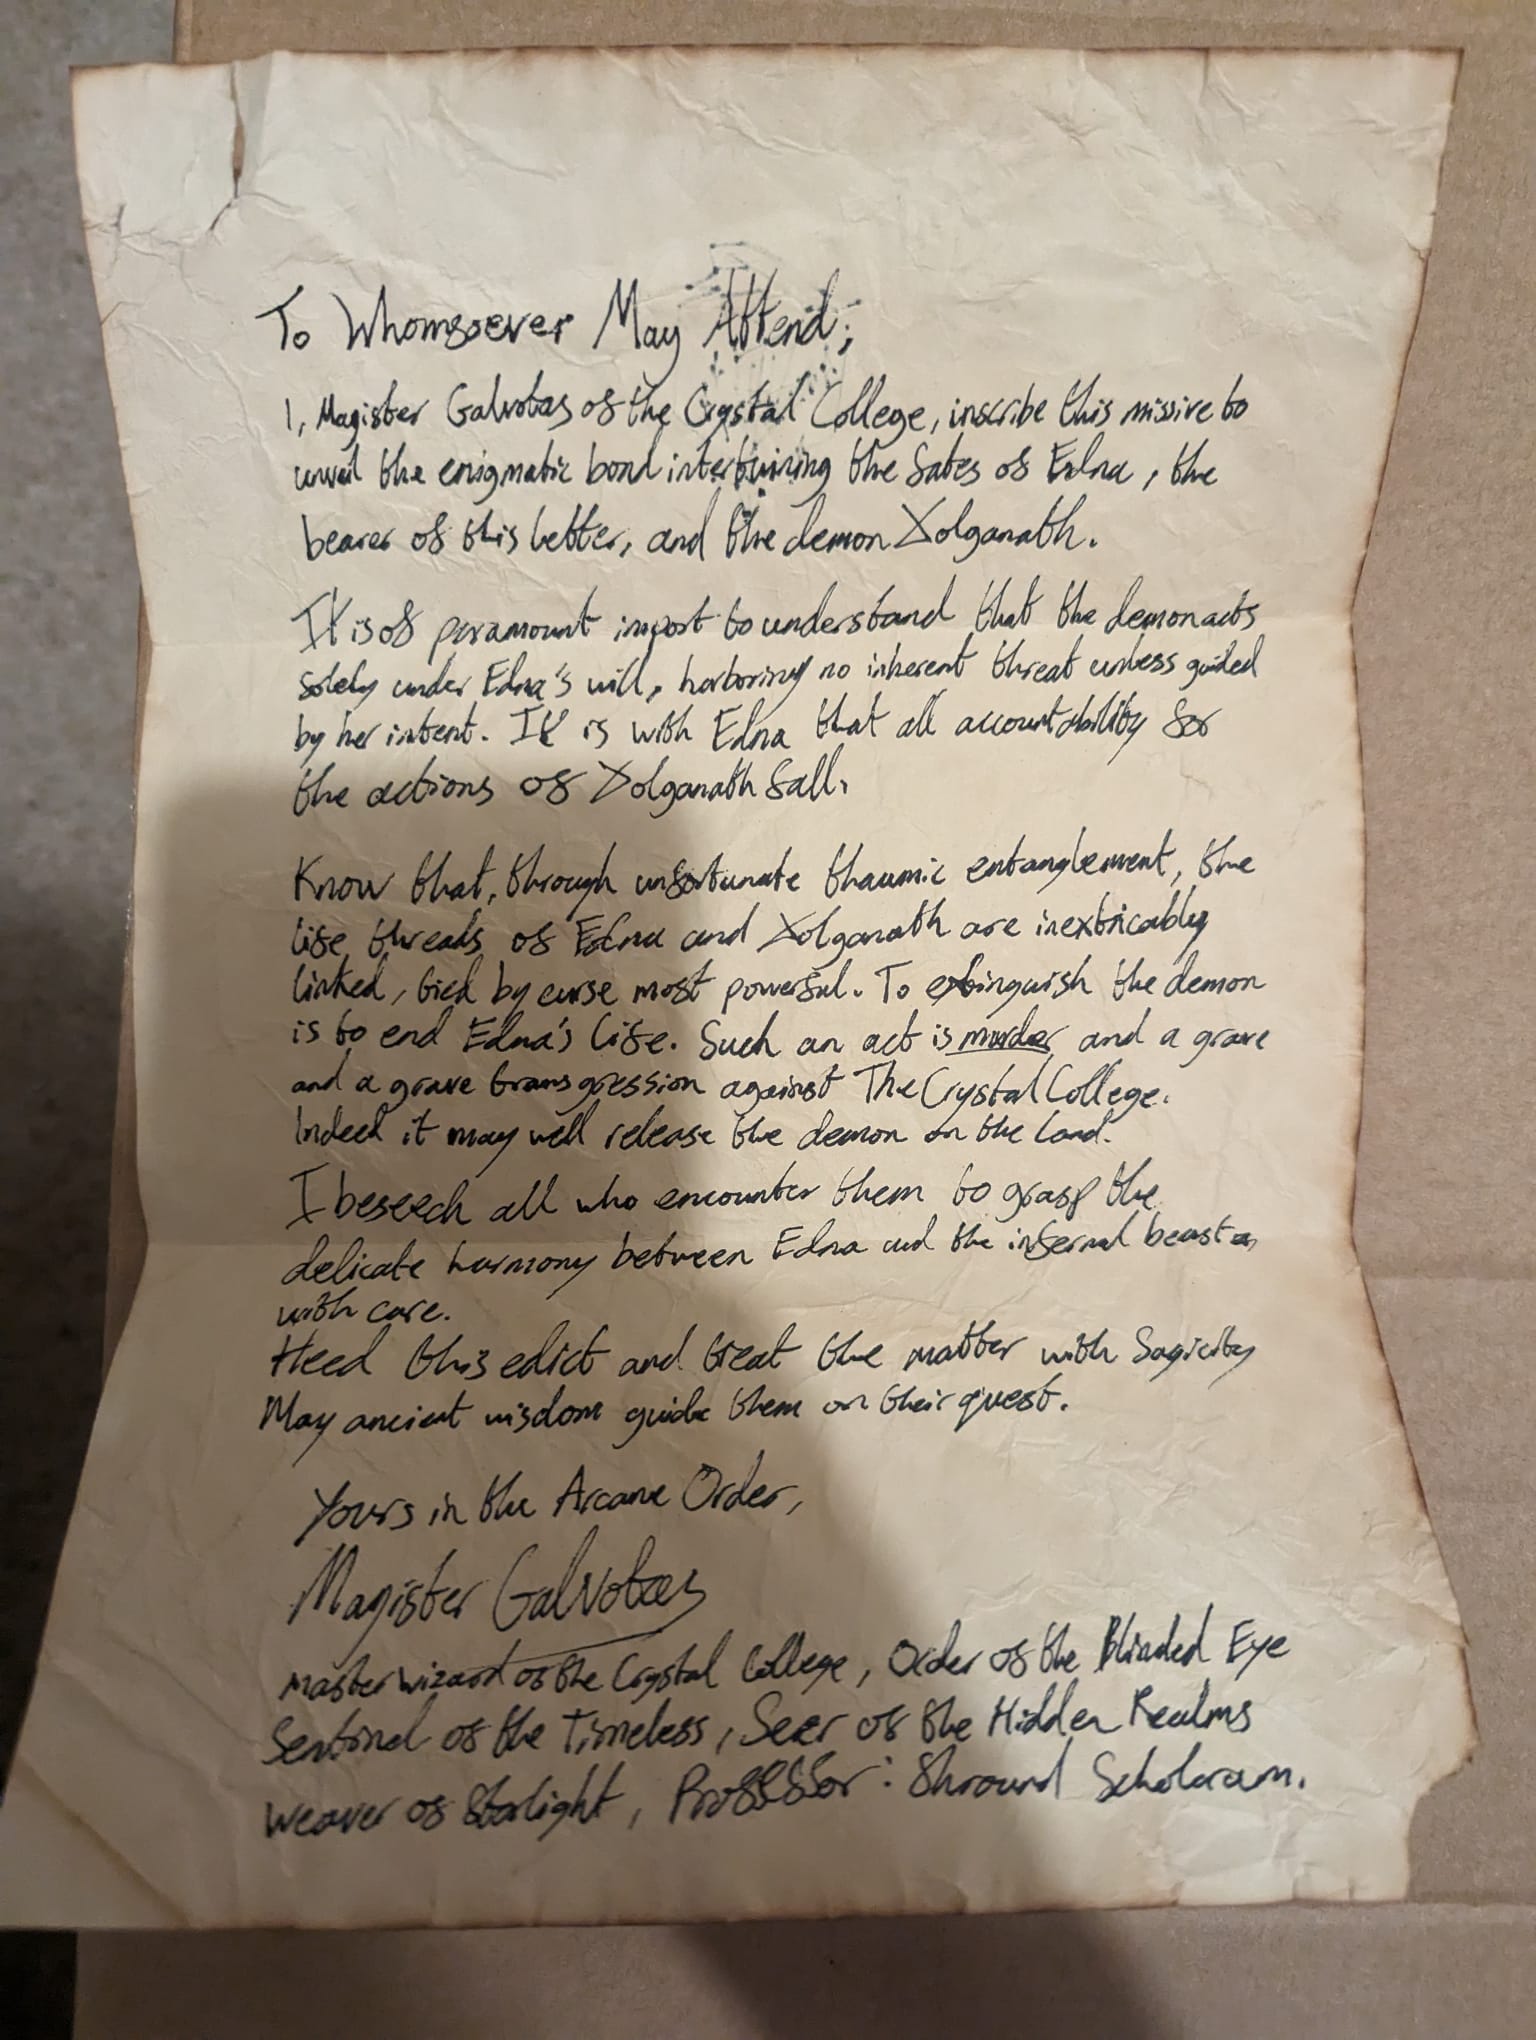 To Whomsoever May Attend;
I, Magister Galvotas of the Crystal College, inscribe this missive to
unveil the enigmatic bond intertwining the fates of Edna, the
bearer of this letter, and the demon Xolganath.
It is of paramount import to understand that the demon acts
solely under Edna's will, harboring no inherent threat unless guided
by her intent. It is with Edna that all accountability for
the actions of Xolganath fall.
Know that, through unfortunate thaumic entanglement, the
life threads of Edna and Xolganath are inextricably
linked, tied by curse most powerful. To extinguish the demon
is to end Edna's life. Such an act is murder and a grave
and a grave transgression against The Crystal College.
Indeed it may well release the demon on the land.
I beseech all who encounter them to grasp the
delicate harmony between Edna and the infernal beast
with care.
Heed this edict and treat the matter with Sagicity
May ancient wisdom guide them on their quest.
Yours in the Arcane Order,
Magister Galvotas
Master wizard of the Crystal College, Order of the Blinded Eye
Sentinel of the Timeless, Seer of the Hidden Realms
Weaver of Starlight, Professor: Shround Scholaram.